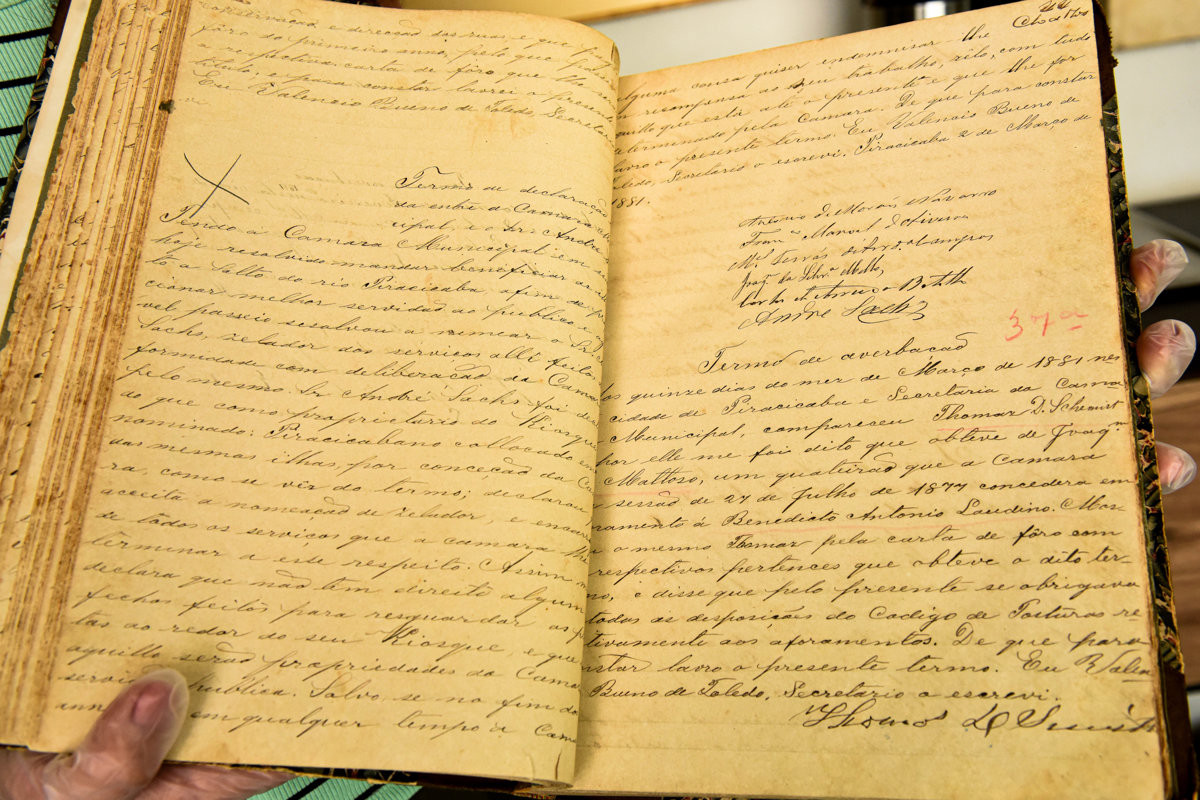 conservação e direcção das ruas e que p
fôro do primeiro anno, pelo que
a respectiva carta de fôro que lhe
titulo, e para constar lavrei o presen
Eu Valencio Bueno de Toledo, Secretar
Termo de declaração
da entre a Camara
cipal, e o Sr. André
Tendo a Camara Municipal em
hoje resolvido mandar beneficiar as il
to a Salto do rio Piracicaba, afim de pr
cionar melhor servidão ao publico, e
vel passeio resolveu a nomear o Sr.
Sachs, zelador dos serviços alli feito
formidade com deliberação da Cama
pelo mesmo Sr. André Sachs foi de
do que como proprietario do Kiosque
nominado: Piracicabano collocado em
das mesmas ilhas por conceção da Ca
ra, como se vir do termo; declarou
aceita a nomeação de zelador, e encar
de todos os serviços que a camara lhe
terminar a este respeito. Assim
declara que não tem direito algum
fechos feitos para resguardar as pl
tas ao redor do seu Kiosque, e que
aquillo serão propriedades da Cama
servi publica. Salvo se no fim do
ann em qualquer tempo a Cam
44
lguma cousa quiser indemnisar lhe
recompensa ao seu trabalho, zilo, com tudo
quillo que esta até o presente e que lhe for
eterminado pela Camara. De que para constar
lavro o presente termo. Eu, Valencio Bueno de
oledo, Secretario o escrevi. Piracicaba 2 de Março de
1881.
Antonio de Moraes Navarro
Fran.co Manoel d'Oliveira
Joaq.m da Silv.a Mello
André Sachs
37a
Termo de averbação
os quinze dias do mez de Março de 1881 nes
cidade de Piracicaba e Secretaria da Cama
Municipal, compareceu Thomaz D. Schmist
por elle me foi dito que obteve de Joaq.m
Mattoso, um quateirão que a Camara
sessão de 27 de Julho de 1877 concedera em
oramento á Benedicto Antonio Laudino. Mos
u o mesmo Thomaz pela carta de fôro com
respectivos pertences que obteve o dito ter-
no, e disse que pelo presente se obrigava
todas as desposições do Codigo de Posturas re
tivamente aos aforamentos. De que para
nstar lavro o presente termo. Eu Valen
Bueno de Toledo, Secretario o escrevi.
Thomas D